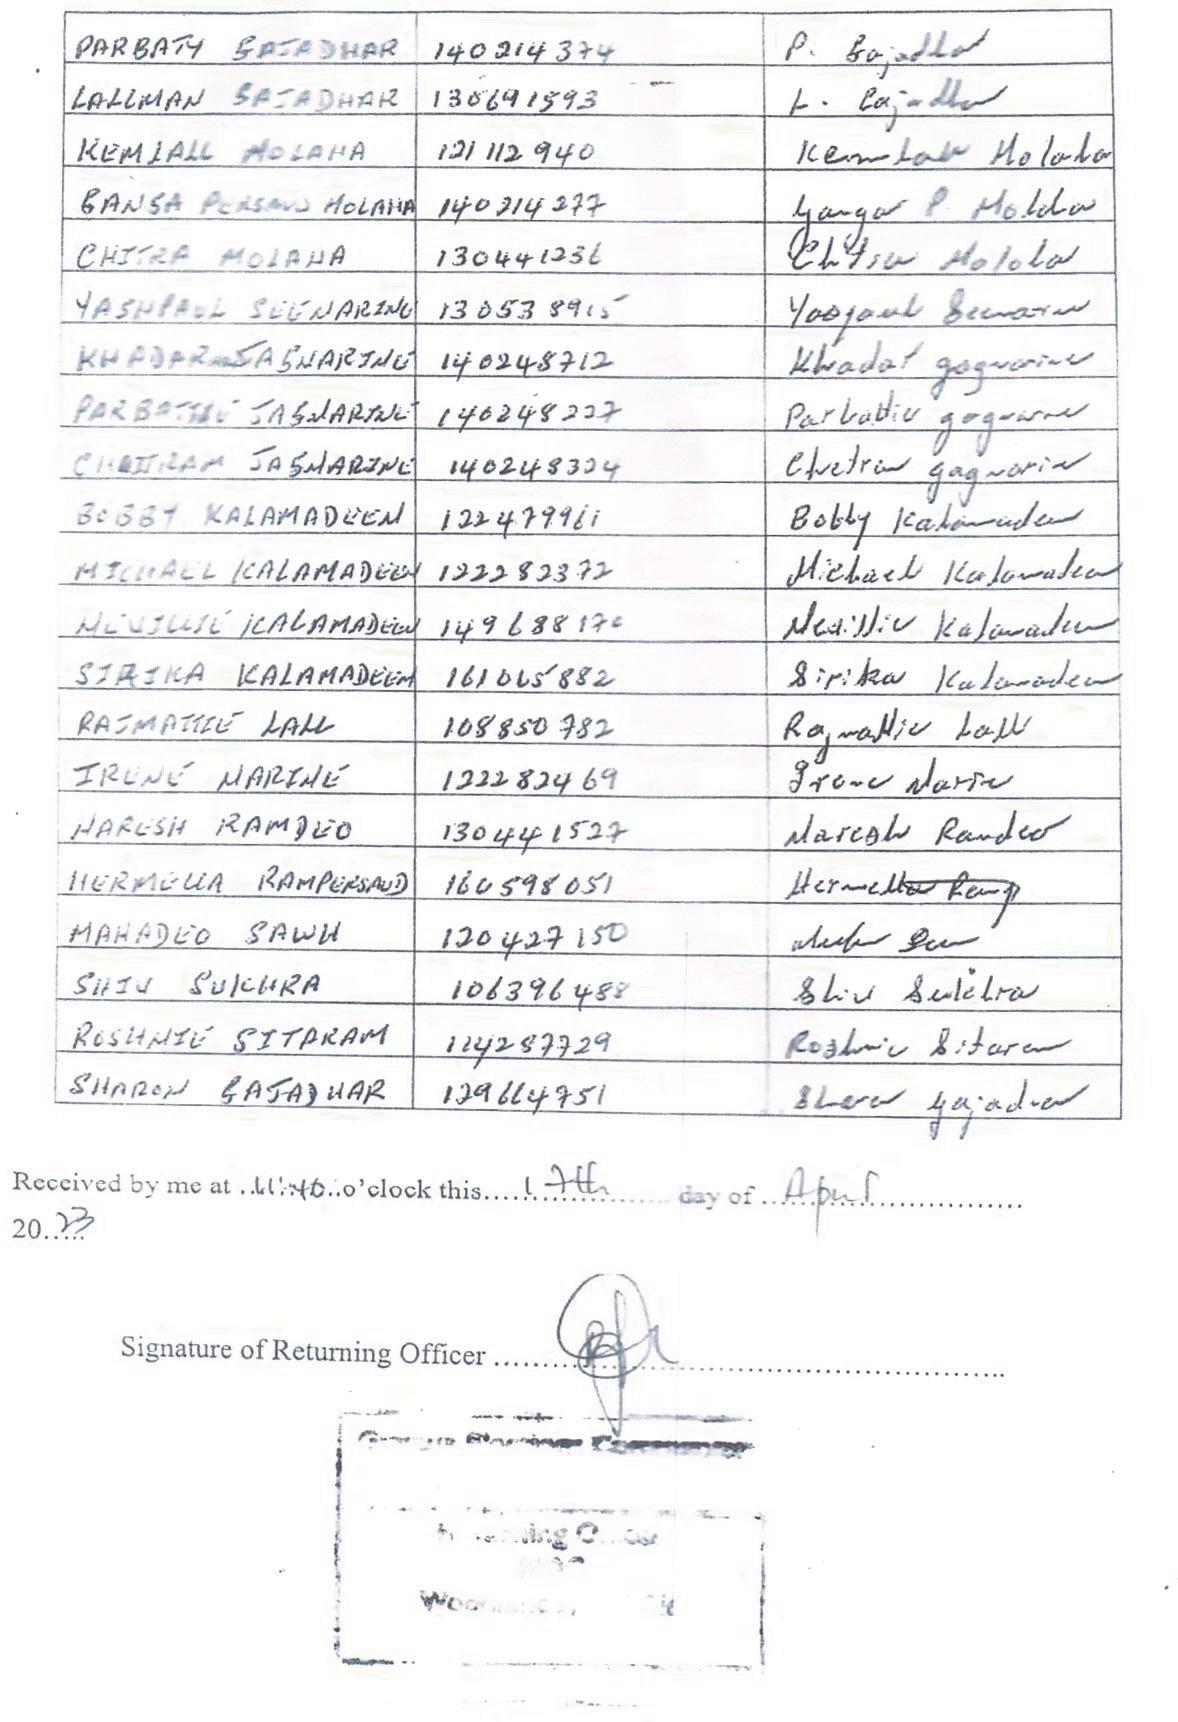 PARBATY GAJADHAR 140214374 P. Gajadhar
LALLMAN GAJADHAR 130691593 L. Gajadhar
KEMLALL MOLAHA 121112940 Kemlall Molaha
GANGA PERSAUD MOLAHA 140214277 Ganga P. Molaha
CHITRA MOLAHA 130441236 Chitra Molaha
YASHPAUL SEENARINE 130538915 Seenarine
JAGNARINE 140248712 Khadar Jagnarine
PARBATTIE JAGNARINE 140248227 Parbattie Jagnarine
JAGNARINE 140248324 Jagnarine
BOBBY KALAMADEEN 122479961 Bobby Kalamadeen
MICHAEL KALAMADEEN 122282372 Michael Kalamadeen
KALAMADEEN 149688170 Kalamadeen
SIRIKA KALAMADEEN 161065882 Sirika Kalamadeen
RAJMATTIE LALL 108850782 Rajmattie Lall
IRENE NARINE 122282469 Irene Narine
NARESH RAMDEO 130441527 Naresh Ramdeo
HERMELLA RAMPERSAUD 160598051 Hermella Ramp
MAHADEO SAWH 120427150
SHIV SUKHRA 106396488 Shiv Sukhra
ROSHNIE SITARAM 114287729 Roshnie Sitaram
SHARON GAJADHAR 129664751 Sharon Gajadhar
Received by me at 11:40 o'clock this 17th day of April
2023
Signature of Returning Officer